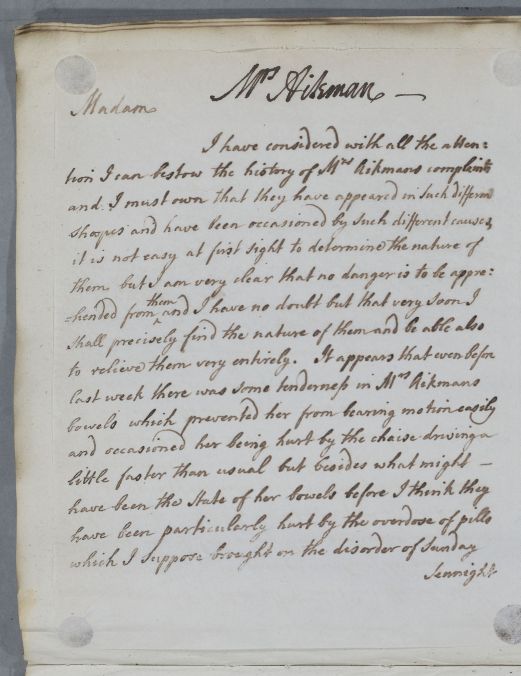 Mrs Aikman —
Madam
I have considered with all the atten:
tion I can bestow the history of Mrs Aikmans complaints
and I must own that they have appeared in such different
shapes and have been occasioned by such different causes,
it is not easy at first sight to determine the nature of
them but I am very clear that no danger is to be appre:
:hended from them and I have no doubt but that very soon I
shall precisely find the nature of them and be able also
to relieve them very entirely. It appears that even before
last week there was some tenderness in Mrs Aikmans
bowels which prevented her from bearing motion easily
and occasioned her being hurt by the chaise driving a
little faster than usual but besides what might —
have been the State of her bowels before I think they
have been particularly hurt by the overdose of pills
which I suppose brought on the disorder of Sunday
Sennight